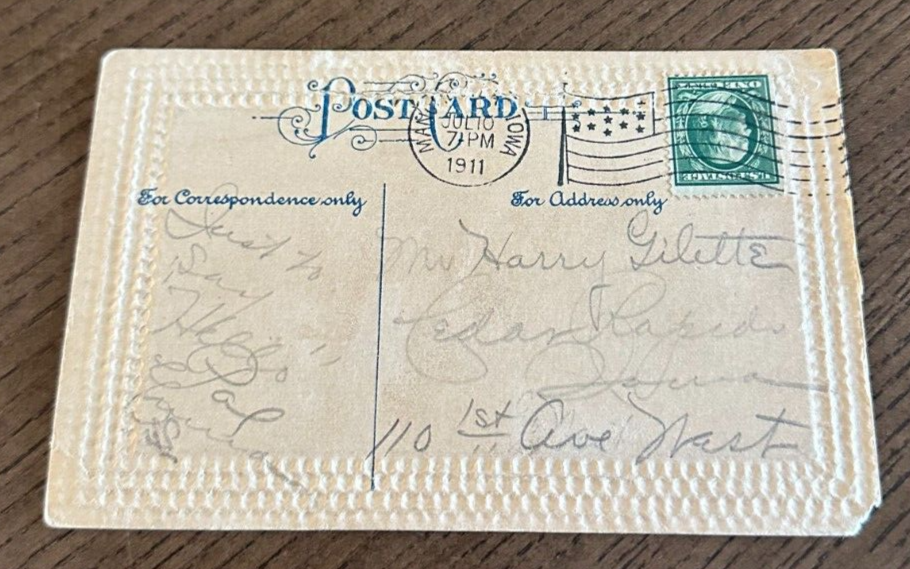 POST CARD
MAN IOWA
JUL 10
7-PM
1911
For Correspondence only
For Address only
Just to
Say
Hello
Pal
Mr Harry Gilette
Cedar Rapids
Iowa
110 1st Ave West